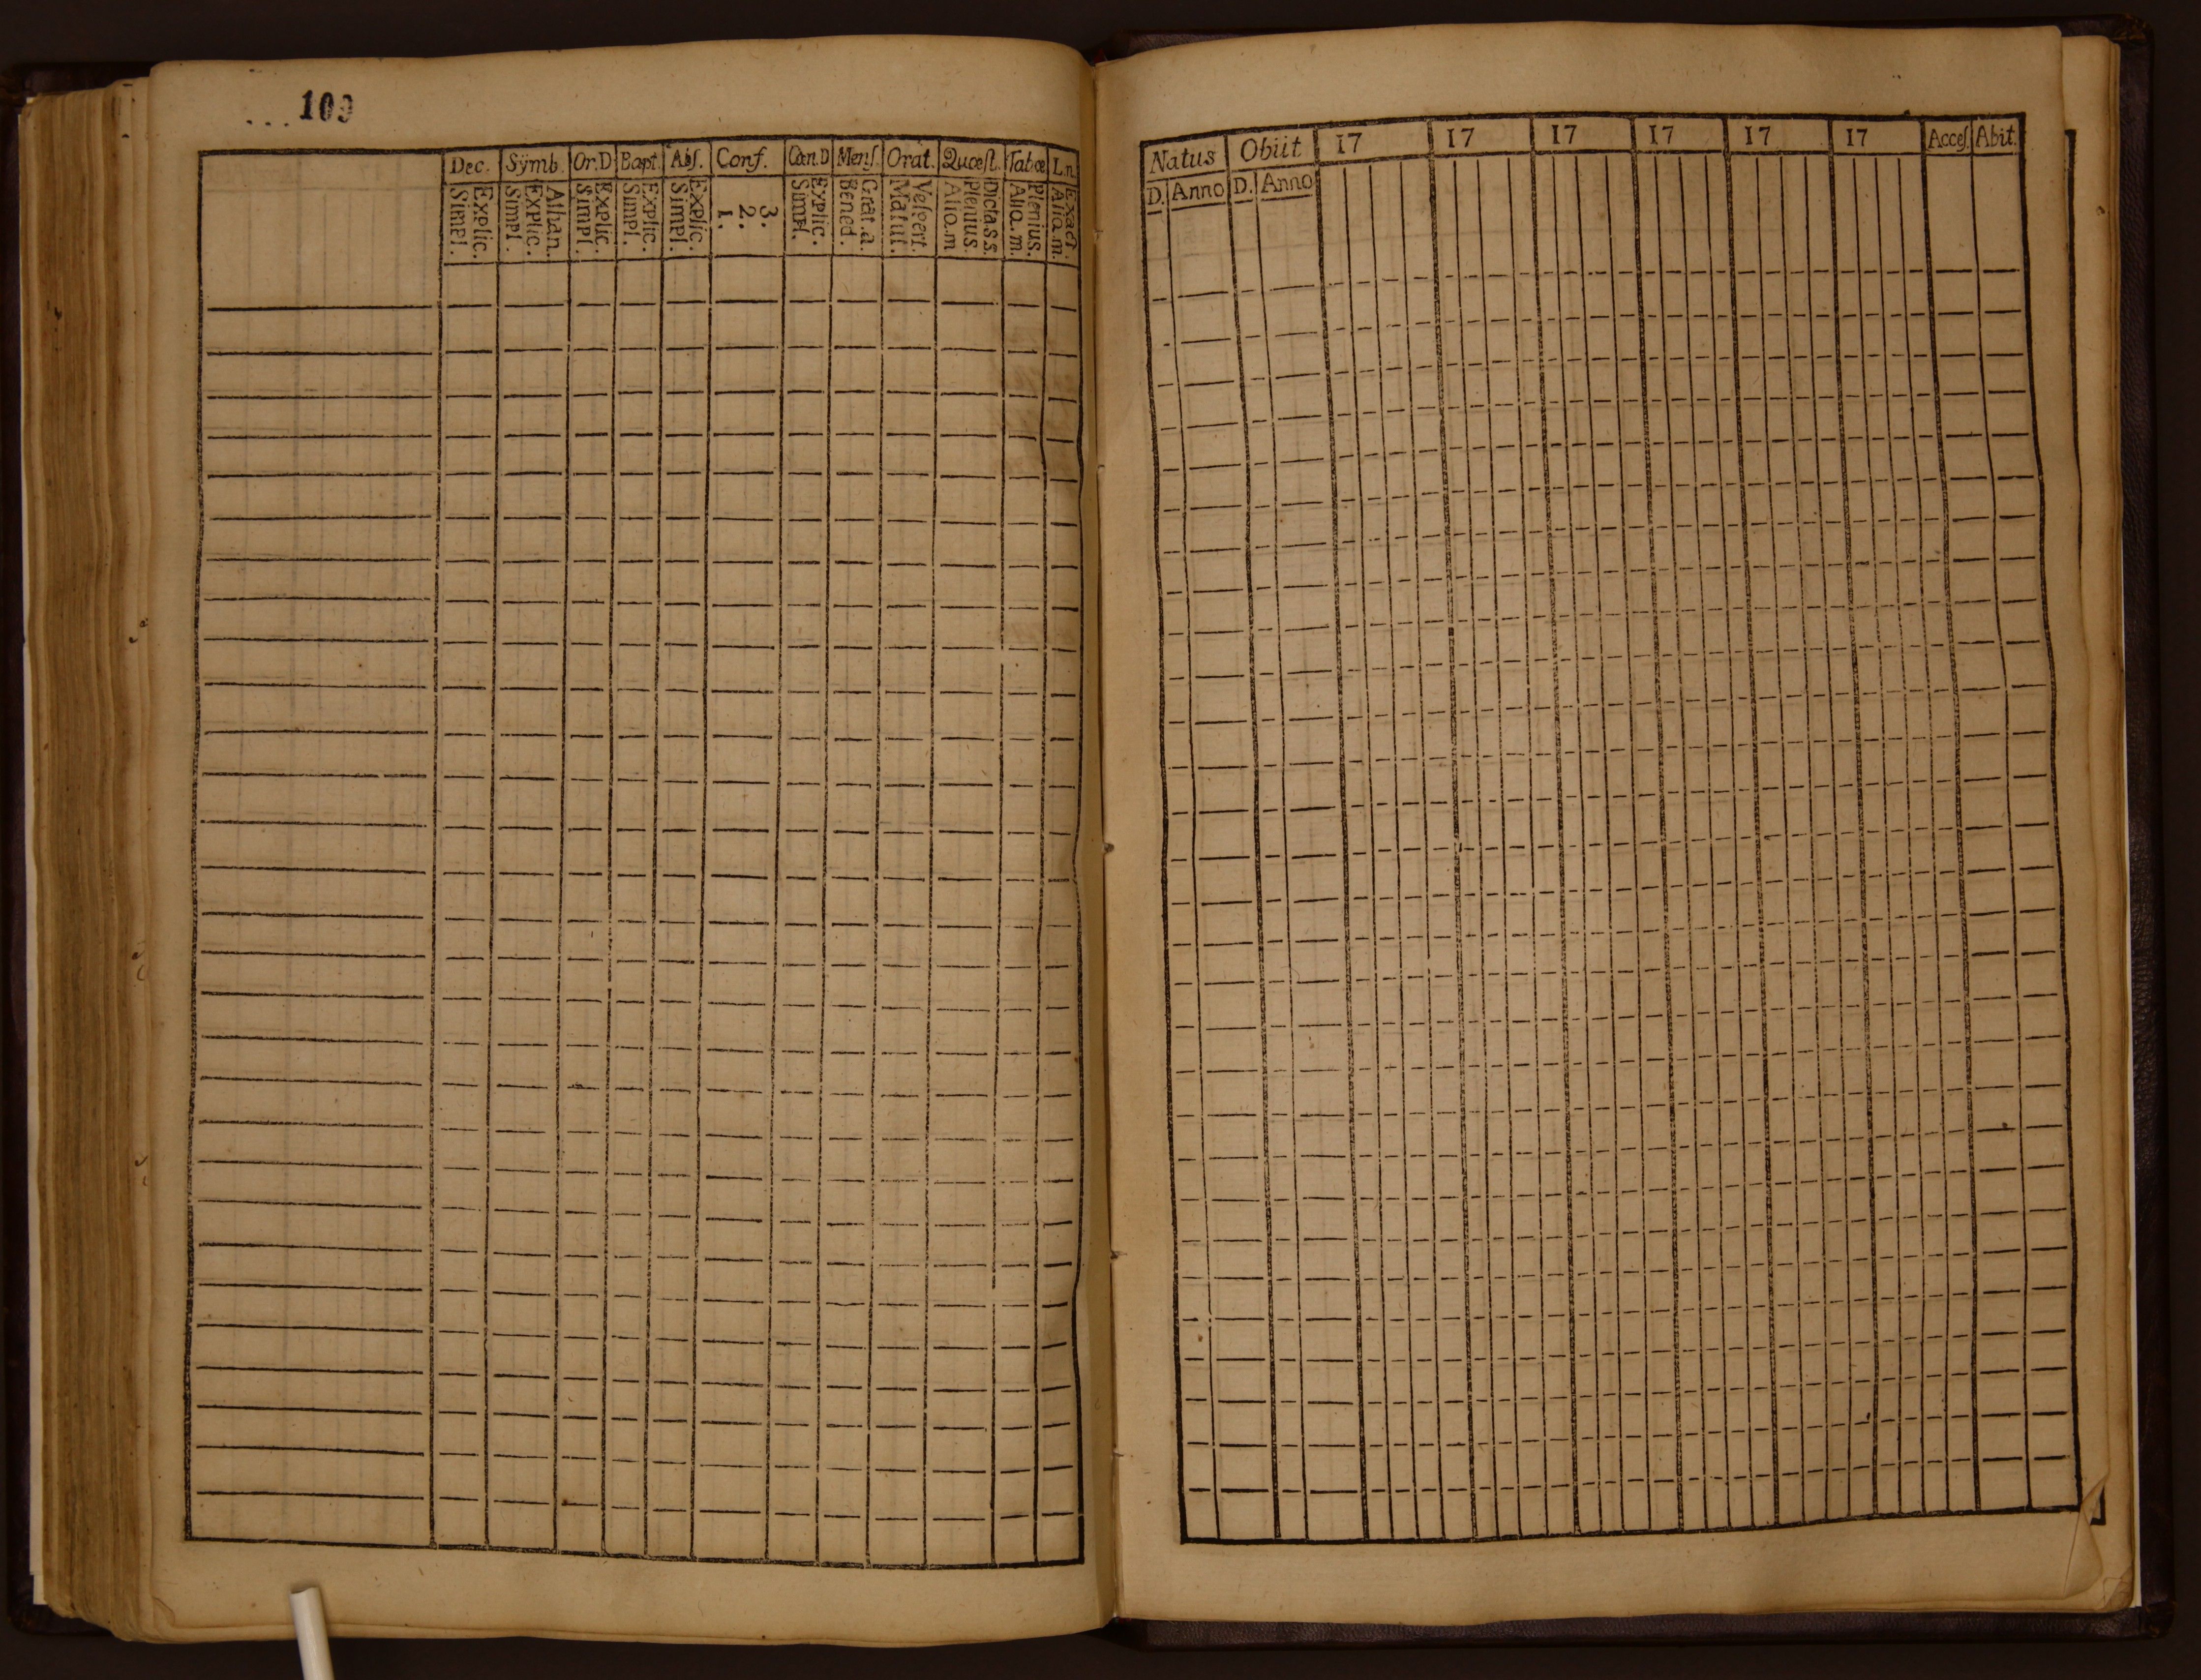 109
Dec. Sÿmb. Or.D Bapt. Abſ. Conf. Cœn.D Menſ. Orat. Quœſt. Tabœ L.n.
Simpl. Explic. Simpl. Explic. Athan. Simpl. Explic. Simpl. Explic. Simpl. Explic. 1. 2. 3. Simpl. Explic. Bened. Grat.a. Matut. Veſpert. Aliq.m Plenius. Dicta.s.s. Aliq.m. Plenius. Aliq.m. Exact.
Natus Obiit 17 17 17 17 17 17 Acceſ. Abit.
D. Anno D. Anno